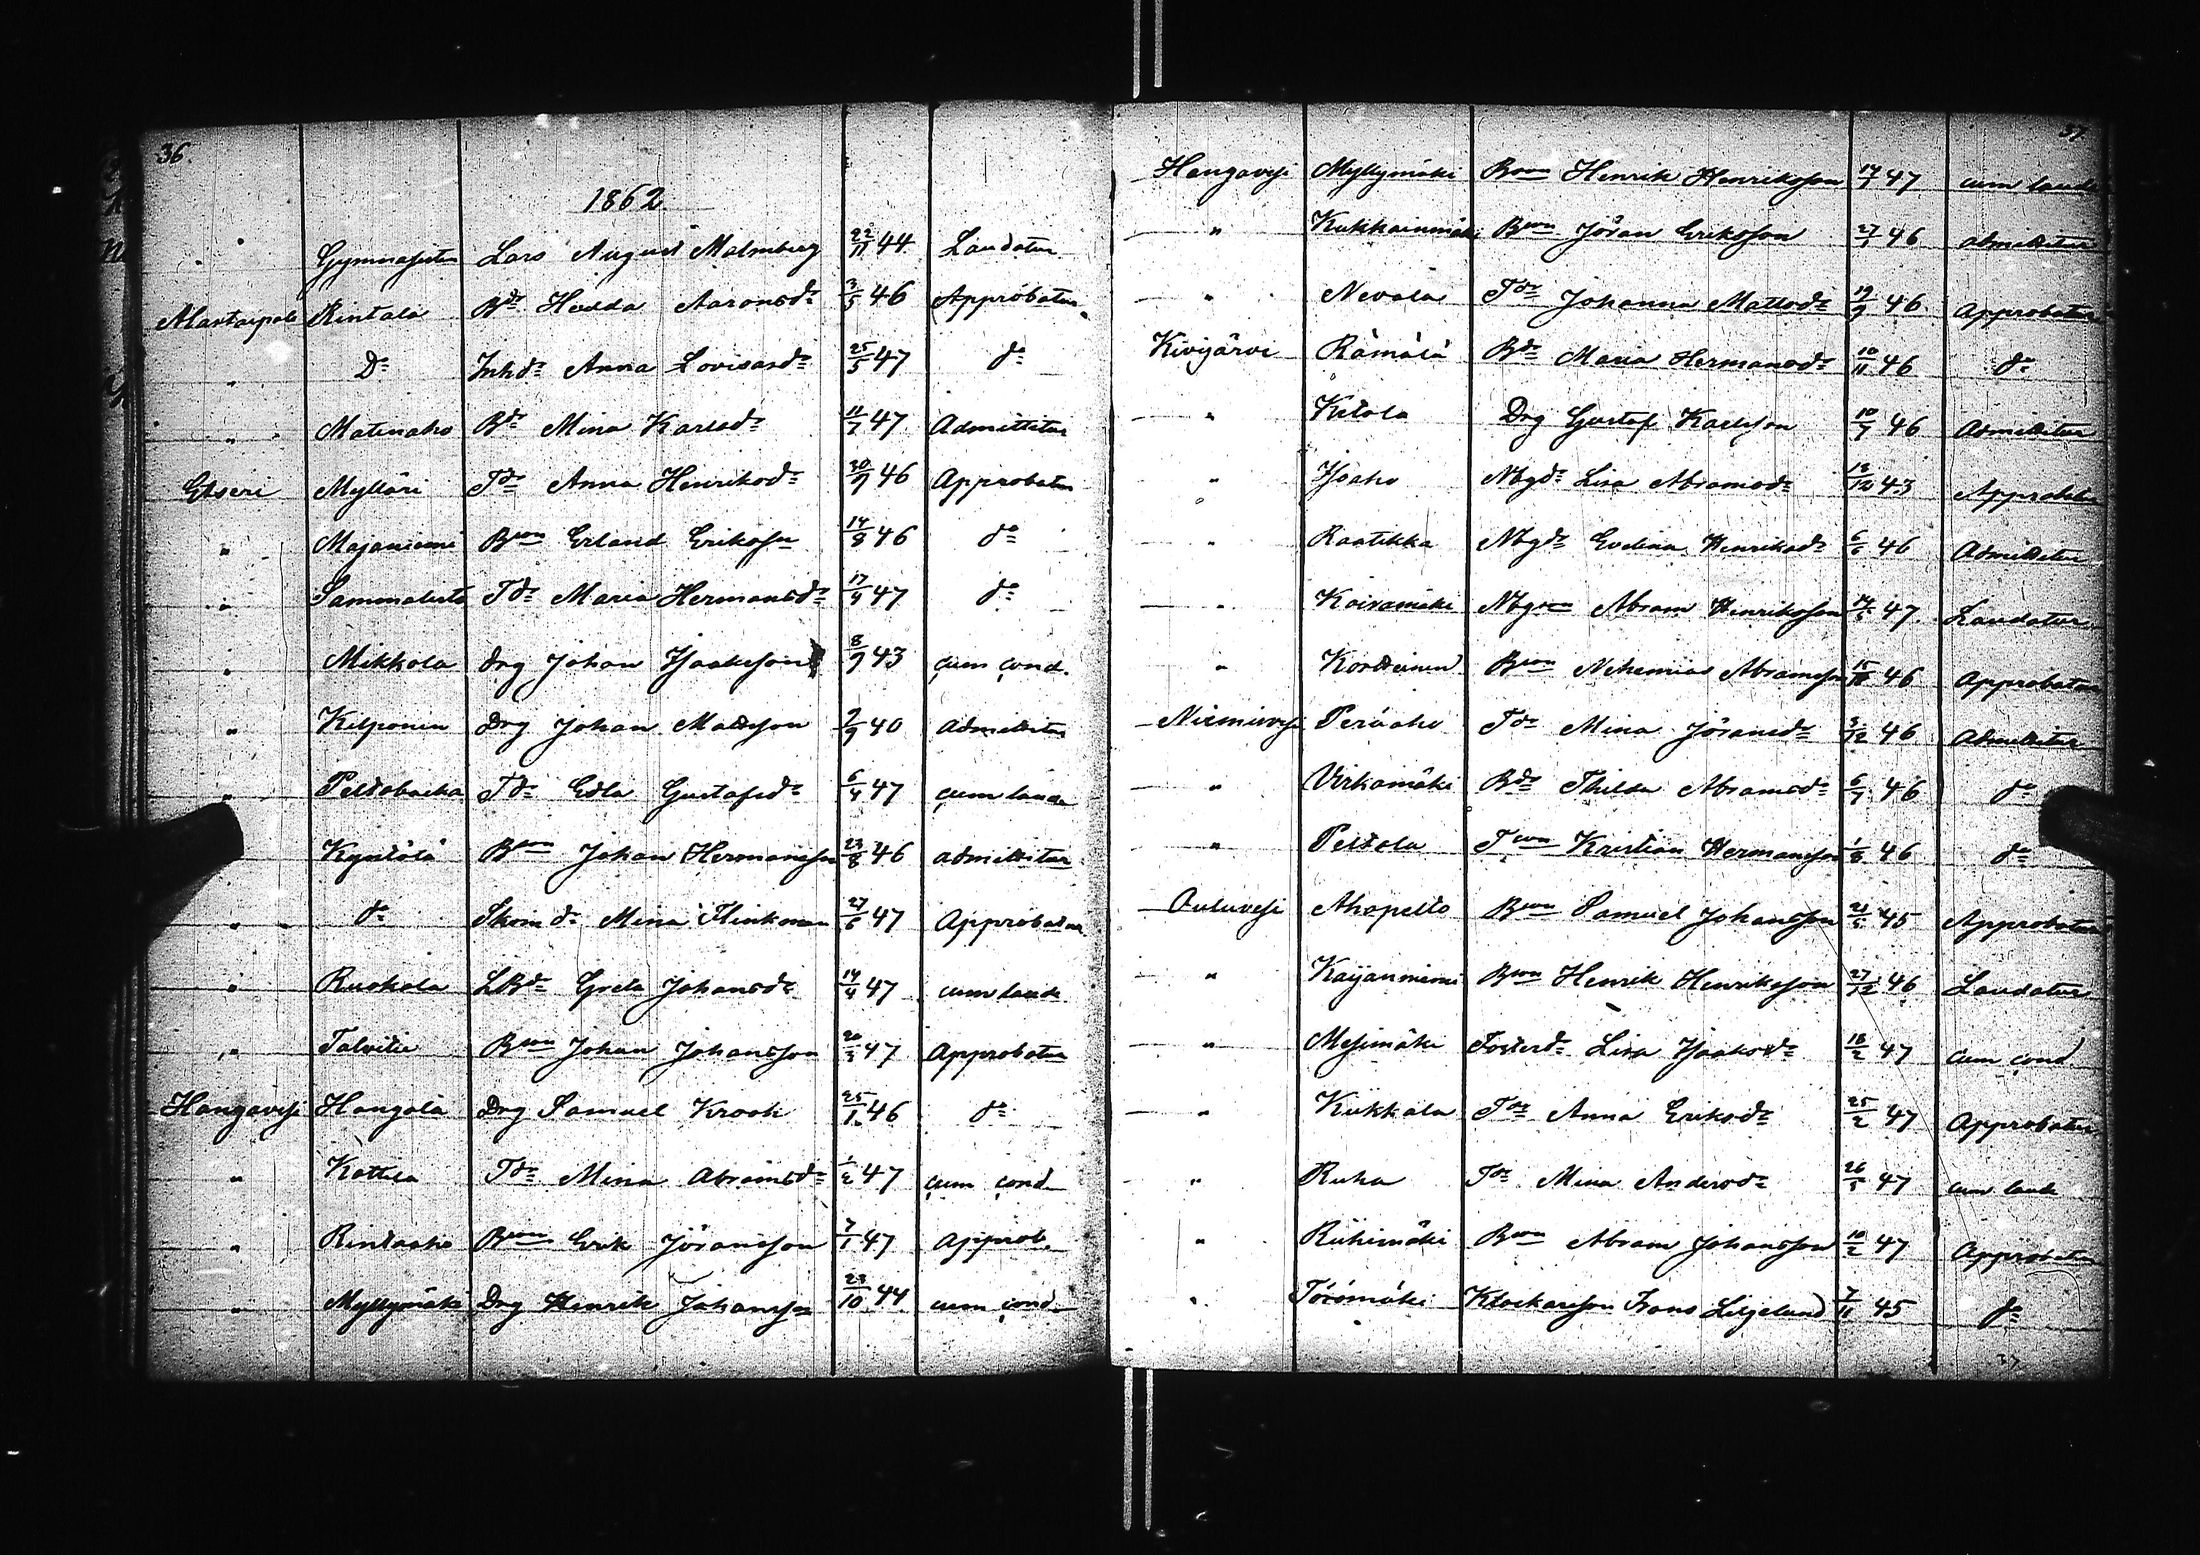 36.
1862
Gymnasisten Lars August Malmberg 22/11 44 Laudatur
Alastaipale Rintala Bdr Hedda Aaronsdr 3/5 46 Approbatur.
" Do Inhdr Anna Lovisasdr 25/5 47 do
" Matinaho Bdr Mina Karlsdr 11/7 47 Admittitur
Etseri Mylläri Tdr Anna Henriksdr 30/9 46 Approbatur
" Majaniemi Bson Erland Eriksson 14/8 46 do
" Sammalisto Tdr Maria Hermansdr 17/4 47 do
" Mikkola Drg Johan Isaksson 8/9 43 cum cond.
" Kilponen Drg Johan Mattsson 9/9 40 admittitur
" Peltobacka Tdr Edla Gustafsdr 6/4 47 cum laude
Kyntölä Bson Johan Hermansson 23/8 46 admittitur
" do Skom dr Mina Flinkman 27/6 47 Approbatur
" Ruokola LBdr Greta Johansdr 14/4 47 cum laude
" Talvitie Bson Johan Johansson 20/3 47 Approbatur
Hangavesi Hangola Drg Samuel Krook 25/1 46 do
" Kottila Tdr Mina Abramsdr 1/2 47 cum cond
" Rintaaho Bson Erik Jöransson 7/1 47 Approb.
" Myllymäki Drg Henrik Johansson 23/10 44 cum cond.
37
Hangavesi Myllymäki Bson Henrik Henriksson 47 cum laude
" Kukkainmäki Bson Jöran Eriksson 27/1 46 admittitur
" Nevala Tdr Johanna Mattsdr 19/9 46 Approbatur
Kivijärvi Rämälä Bdr Maria Hermansdr 10/11 46 do
" Ketola Drg Gustaf Karlsson 10/7 46 Admittitur
" Isoaho Nbgdr Lisa Abramsdr 13/12 43 Approbatur
" Raatikka Nbgdr Evelina Henriksdr 6/6 46 Admittitur
" Koivumäki Nbgson Abram Henriksson 47 Laudatur
" Korteinen Bson Nehemias Abramsson 46 Approbatur
Niemisvesi Peräaho Tdr Mina Jöransdr 3/12 46 Admittitur
" Virkamäki Bdr Thilda Abramsdr 6/7 46 do
" Peltola Tson Kristian Hermansson 1/8 46 do
Ouluvesi Ahopelto Bson Samuel Johansson 45 Approbatur
" Kaijanniemi Bson Henrik Henriksson 27/12 46 Laudatur
" Mesimäki Fosterdr Lisa Isaksdr 18/2 47 cum cond
" Kukkola Tdr Anna Eriksdr 25/2 47 Approbatur
" Ruha Tdr Mina Andersdr 26/5 47 cum laude
" Riihimäki Bson Abram Johansson 10/2 47 Approbatur
" Törömäki Klockarson Frans Liljelund 7/11 45 do
37